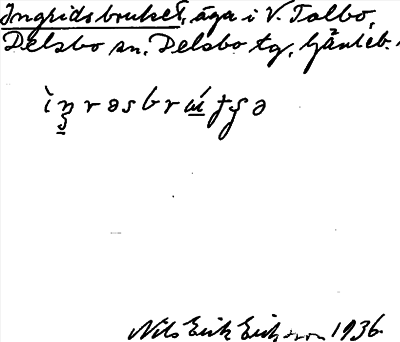 Ingridsbruket, äga i V. Tolbo,
Delsbo sn. Delsbo tg. Gävleb.
Nils Erik Eriksson 1936